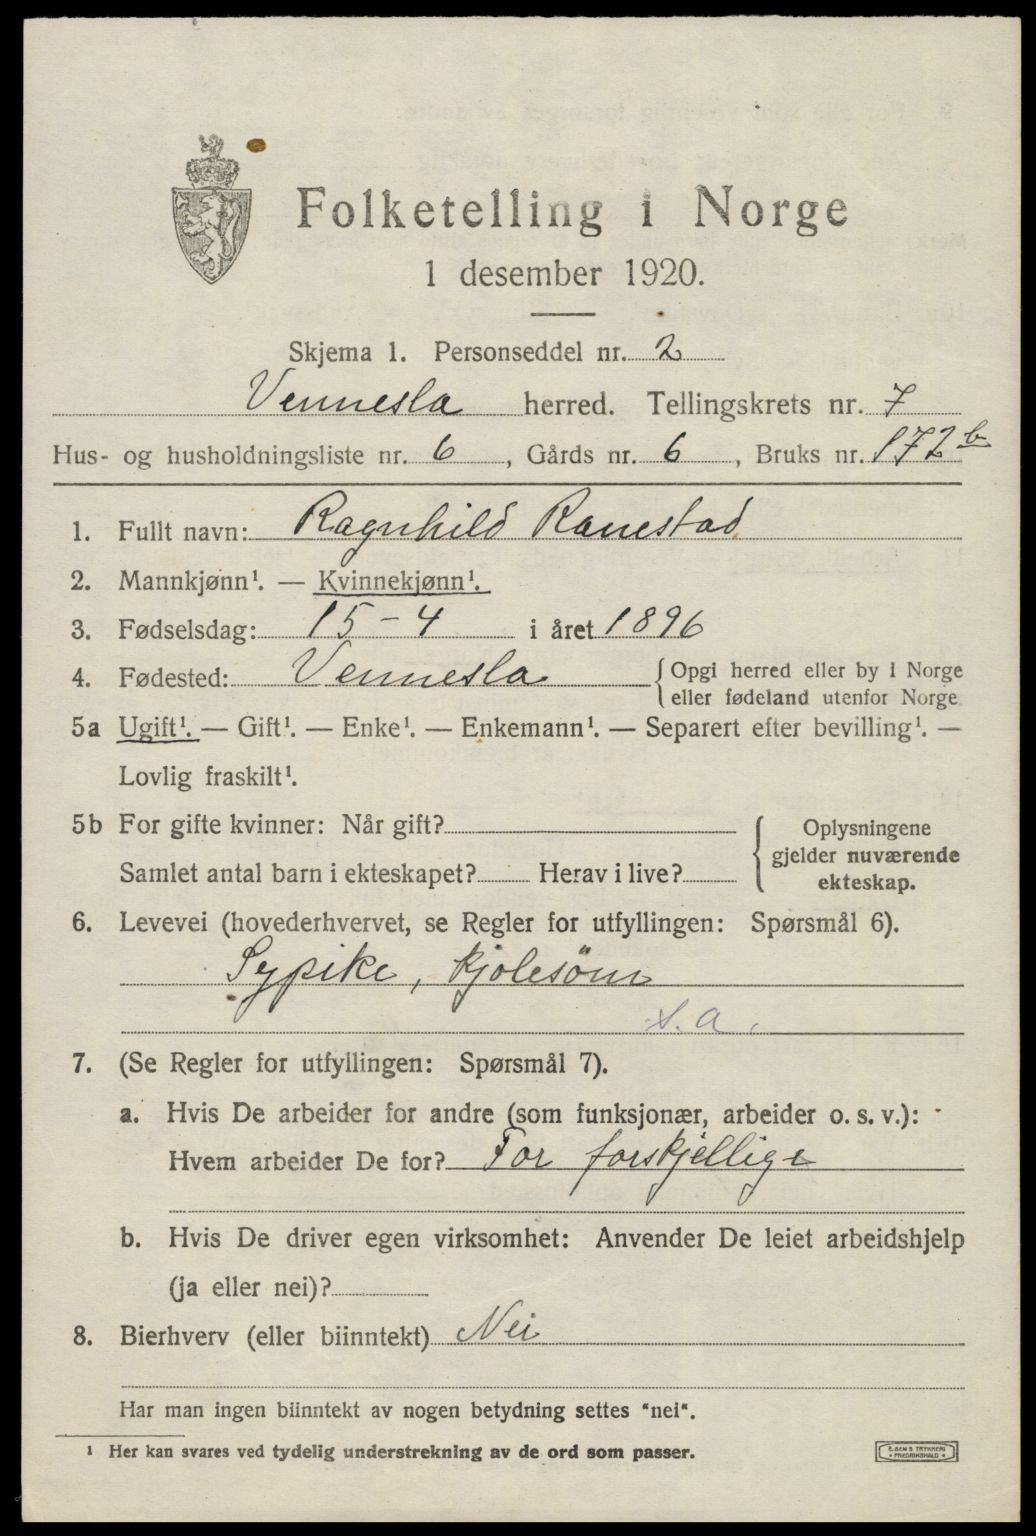 Folketelling i Norge
1 desember 1920.
Skjema 1. Personseddel nr. 2
Vennesla herred. Tellingskrets nr. 7
Hus- og husholdningsliste nr. 6, Gårds nr. 6, Bruks nr. 172 b
1. Fullt navn: Ragnhild Ranestad
2. Mannkjønn¹. — Kvinnekjønn¹.
3. Fødselsdag: 15-4 i året 1896
4. Fødested: Vennesla { Opgi herred eller by i Norge
eller fødeland utenfor Norge
5a Ugift¹. — Gift¹. — Enke¹. — Enkemann¹. — Separert efter bevilling¹. —
Lovlig fraskilt¹.
5b For gifte kvinner: Når gift? { Oplysningene
gjelder nuværende
Samlet antal barn i ekteskapet? Herav i live?
ekteskap.
6. Levevei (hovederhvervet, se Regler for utfyllingen: Spørsmål 6).
Sypike, kjolesøm
s. a.
7. (Se Regler for utfyllingen: Spørsmål 7).
a. Hvis De arbeider for andre (som funksjonær, arbeider o. s. v.):
Hvem arbeider De for? For forskjellige
b. Hvis De driver egen virksomhet: Anvender De leiet arbeidshjelp
(ja eller nei)?
8. Bierhverv (eller biinntekt) Nei
Har man ingen biinntekt av nogen betydning settes "nei".
¹ Her kan svares ved tydelig understrekning av de ord som passer.
E. SEM'S TRYKKERI
FREDRIKSHALD